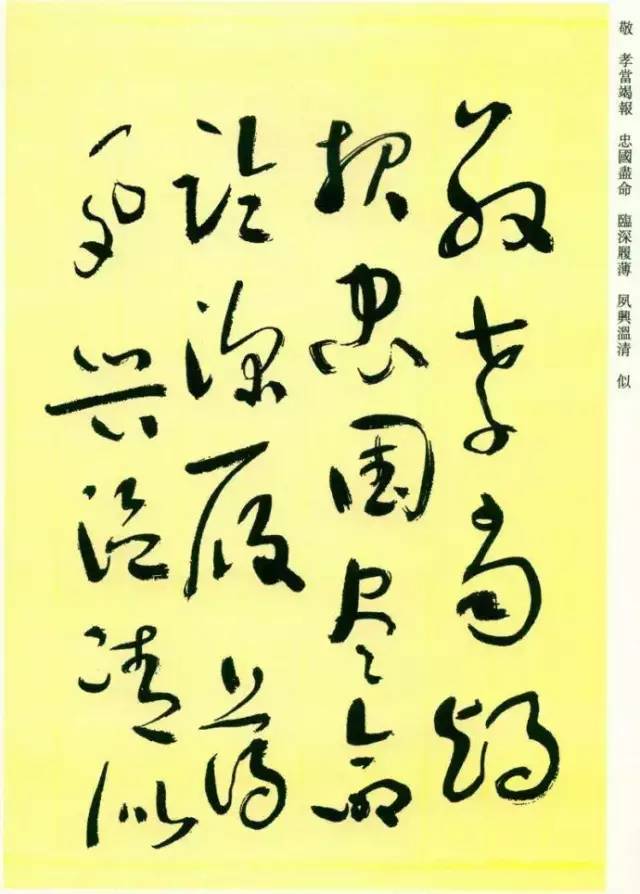 敬孝當竭
報忠國盡命
臨深履薄
夙興溫清似
敬 孝當竭報 忠國盡命 臨深履薄 夙興溫清 似